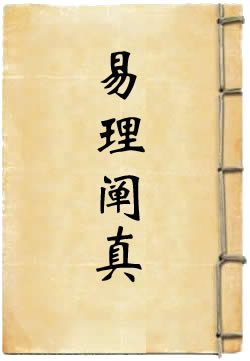 易理阐真